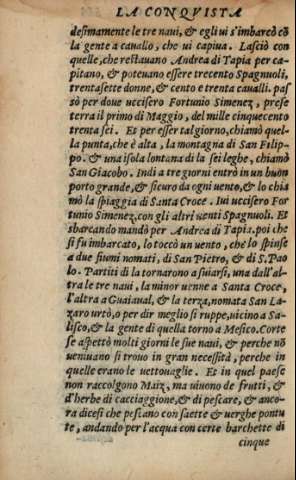 LA CONQVISTA
desimamente le tre naui, & egli vi s'imbarcò cō
la gente a cauallo, che ui capiua. Lasciò con
quelle, che restauano Andrea di Tapia per ca-
pitano, & poteuano essere trecento Spagnuoli,
trentasette donne, & cento e trenta caualli. pas
sò per doue uccisero Fortunio Simenez, prese
terra il primo di Maggio, del mille cinquecento
trenta sei. Et per esser tal giorno, chiamò quel-
la punta, che è alta, la montagna di San Filip-
po. & una isola lontana di là sei leghe, chiamò
San Giacobo. Indi a tre giorni entrò in un buon
porto grande, & sicuro da ogni uento, & lo chia
mò la spiaggia di Santa Croce. Iui uccisero For
tunio Simenez, con gli altri uenti Spagnuoli. Et
sbarcando mandò per Andrea di Tapia. poi che
si fu imbarcato, lo toccò un uento, che lo spinse
a due fiumi nomati, di San Pietro, & di S. Pao
lo. Partiti di la tornarono a suiarsi, una dall'al-
tra le tre naui, la minor uenne a Santa Croce,
l'altra a Guaiaual, & la terza, nomata San La-
zaro urtò, o per dir meglio si ruppe, uicino a Sa-
lisco, & la gente di quella torno a Mesico. Corte
se aspettò molti giorni le sue naui, & perche nō
ueniuano si trouo in gran necessità, perche in
quelle erano le uettouaglie. Et in quel paese
non raccolgono Maiz, ma uiuono de frutti, &
d'herbe di cacciaggione, & di pescare, & anco-
ra dicesi che pescano con saette & uerghe pontu
te, andando per l'acqua con certe barchette di
cinque